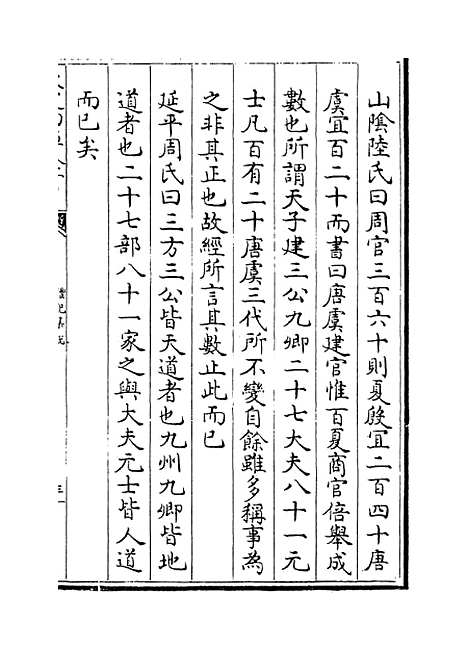 山陰陸氏曰周官三百六十則夏殷宜二百四十唐
虞宜百二十而書曰唐虞建官惟百夏商官倍舉成
數也所謂天子建三公九卿二十七大夫八十一元
士凡百有二十唐虞三代所不變自餘雖多稱事為
之非其正也故經所言其數止此而已
延平周氏曰三方三公皆天道者也九州九卿皆地
道者也二十七部八十一家之與大夫元士皆人道
而已矣